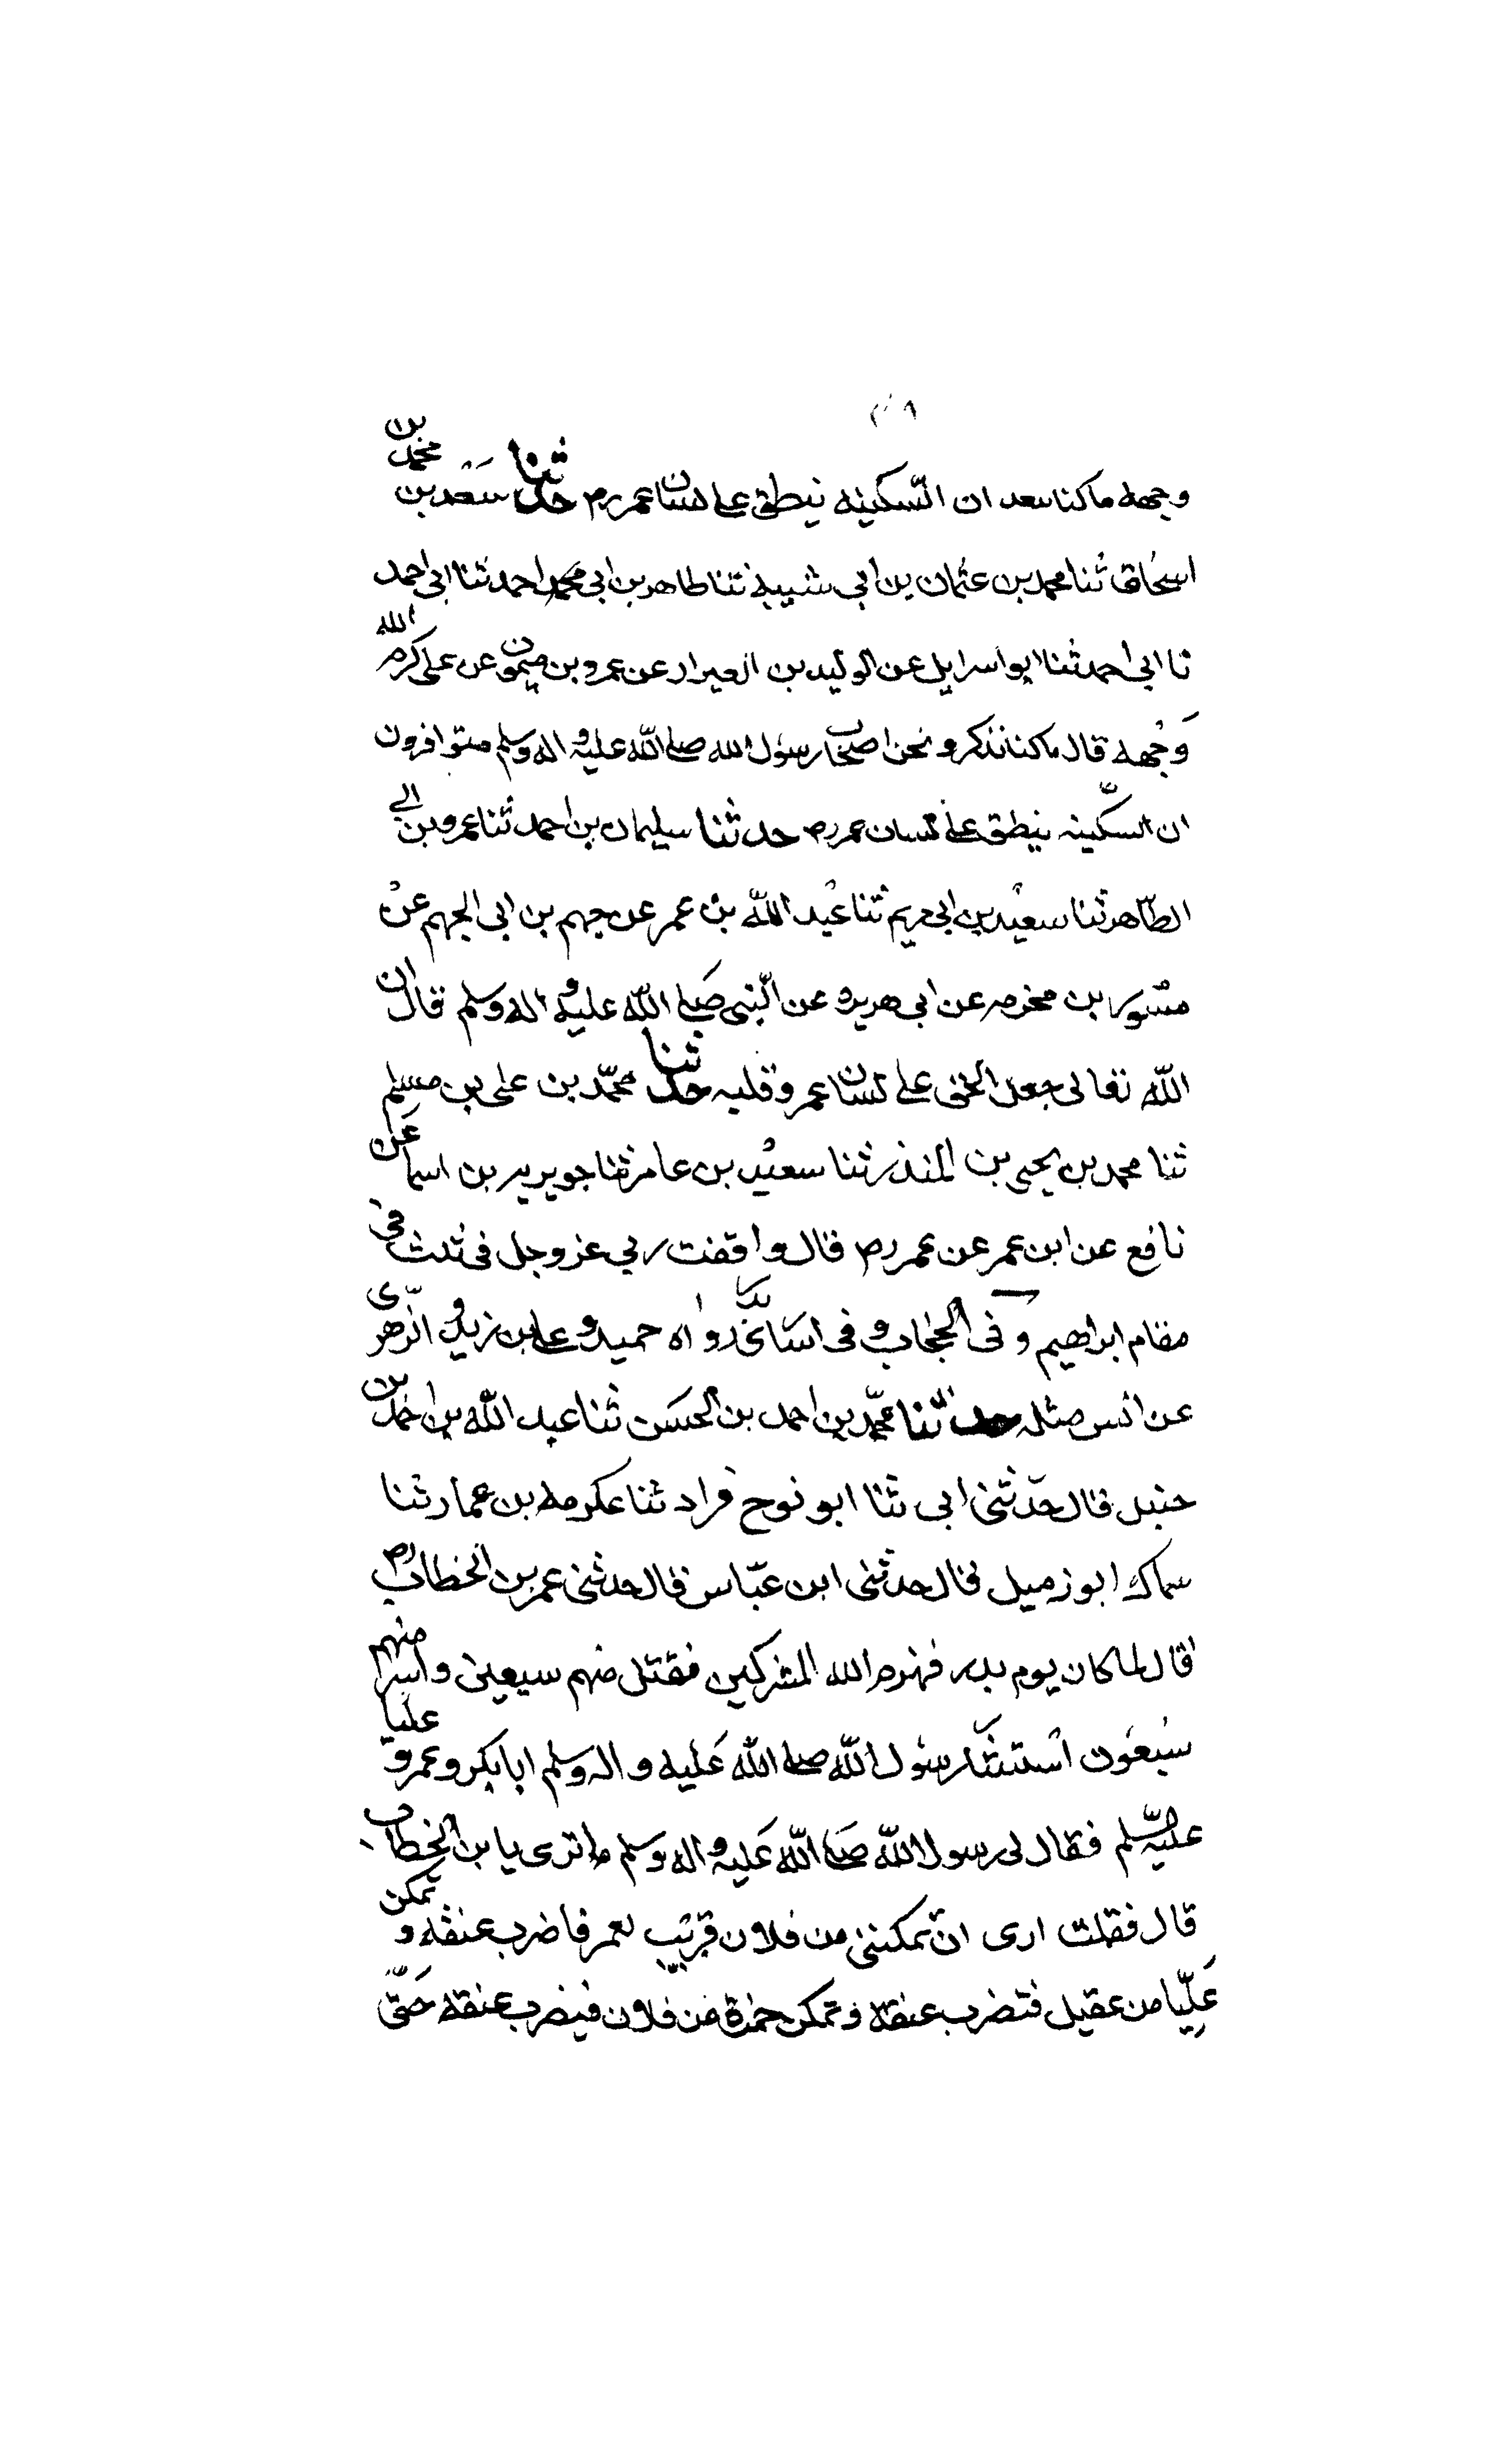 وجهه ما كنا نبعد ان السّكينه ينطق على لسان عمر رض حدثنا سَعد بن محمد بن
اسحاق ثنا محمد بن عثمان بن ابي شيبة ثنا طاهر بن ابي محمد احمد ثنا ابى احمد
نا ابى احمد ثنا ابو اسرايل عن الوليد بن العيزار عن عمرو بن ميمون عن على كرم الله
وَجْهه قال ما كنا ننكر و نحن اصحاب رسول الله صلى الله عليه و اله وسلم متوافرون
ان السكّينه ينطق على لسان عمر رض حدثنا سليمان بن احمد ثنا عمرو بن ابي
الطاهر ثنا سعيد بن ابى مريم ثنا عبد الله بن عمر عن جهم بن ابى الجهم عن
مسور بن مخرمه عن ابى هريره عن النّبى صَلى الله عليه و اله وسلم قال ان
الله تعالى جعل الحق على لسان عمر و قلبه حدثنا محمّد بن على بن مسلم
ثنا محمد بن يحيى بن المنذر ثنا سعيد بن عامر ثنا جويريه بن اسما عَن
نافع عن ابن عمر عن عمر رض قال وافقت ربي عز وجل فى ثلث فى
مقام ابراهيم و فى الحجاب و فى اسَارى بدر رواه حميد و على بن زيد و الزّهرى
عن انس مثله حدثنا محمّد بن احمد بن الحسَن ثنا عبد الله بن احمد بن
حنبل قال حدّثنى ابى ثنا ابو نوح قراد ثنا عكرمه بن عمار ثنا
سماك ابو زميل قال حدثنى ابن عبّاس قال حدثنى عمر بن الخطاب رض
قال لما كان يوم بدر فهزم الله المشركين فقتل منهم سبعين و اسر منهم
سبعون استشار رسول الله صلى الله عَليه و اله وسلم ابا بكر و عمر و عليا
عليه السّلم فقال لى رسول الله صَلى الله عَليه و اله وسلم ما ترى يا بن الخطاب
قال فقلت ارى ان تمكننى من فلان قريب لعمر فاضرب عنقه و تمكن
عَليّا من عقيل فتضرب عنقه و تمكن حمزة من فلان فيضرب عنقه حَتّى